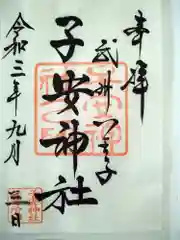 奉拝
武州八王子
子安神社
令和三年九月
三日